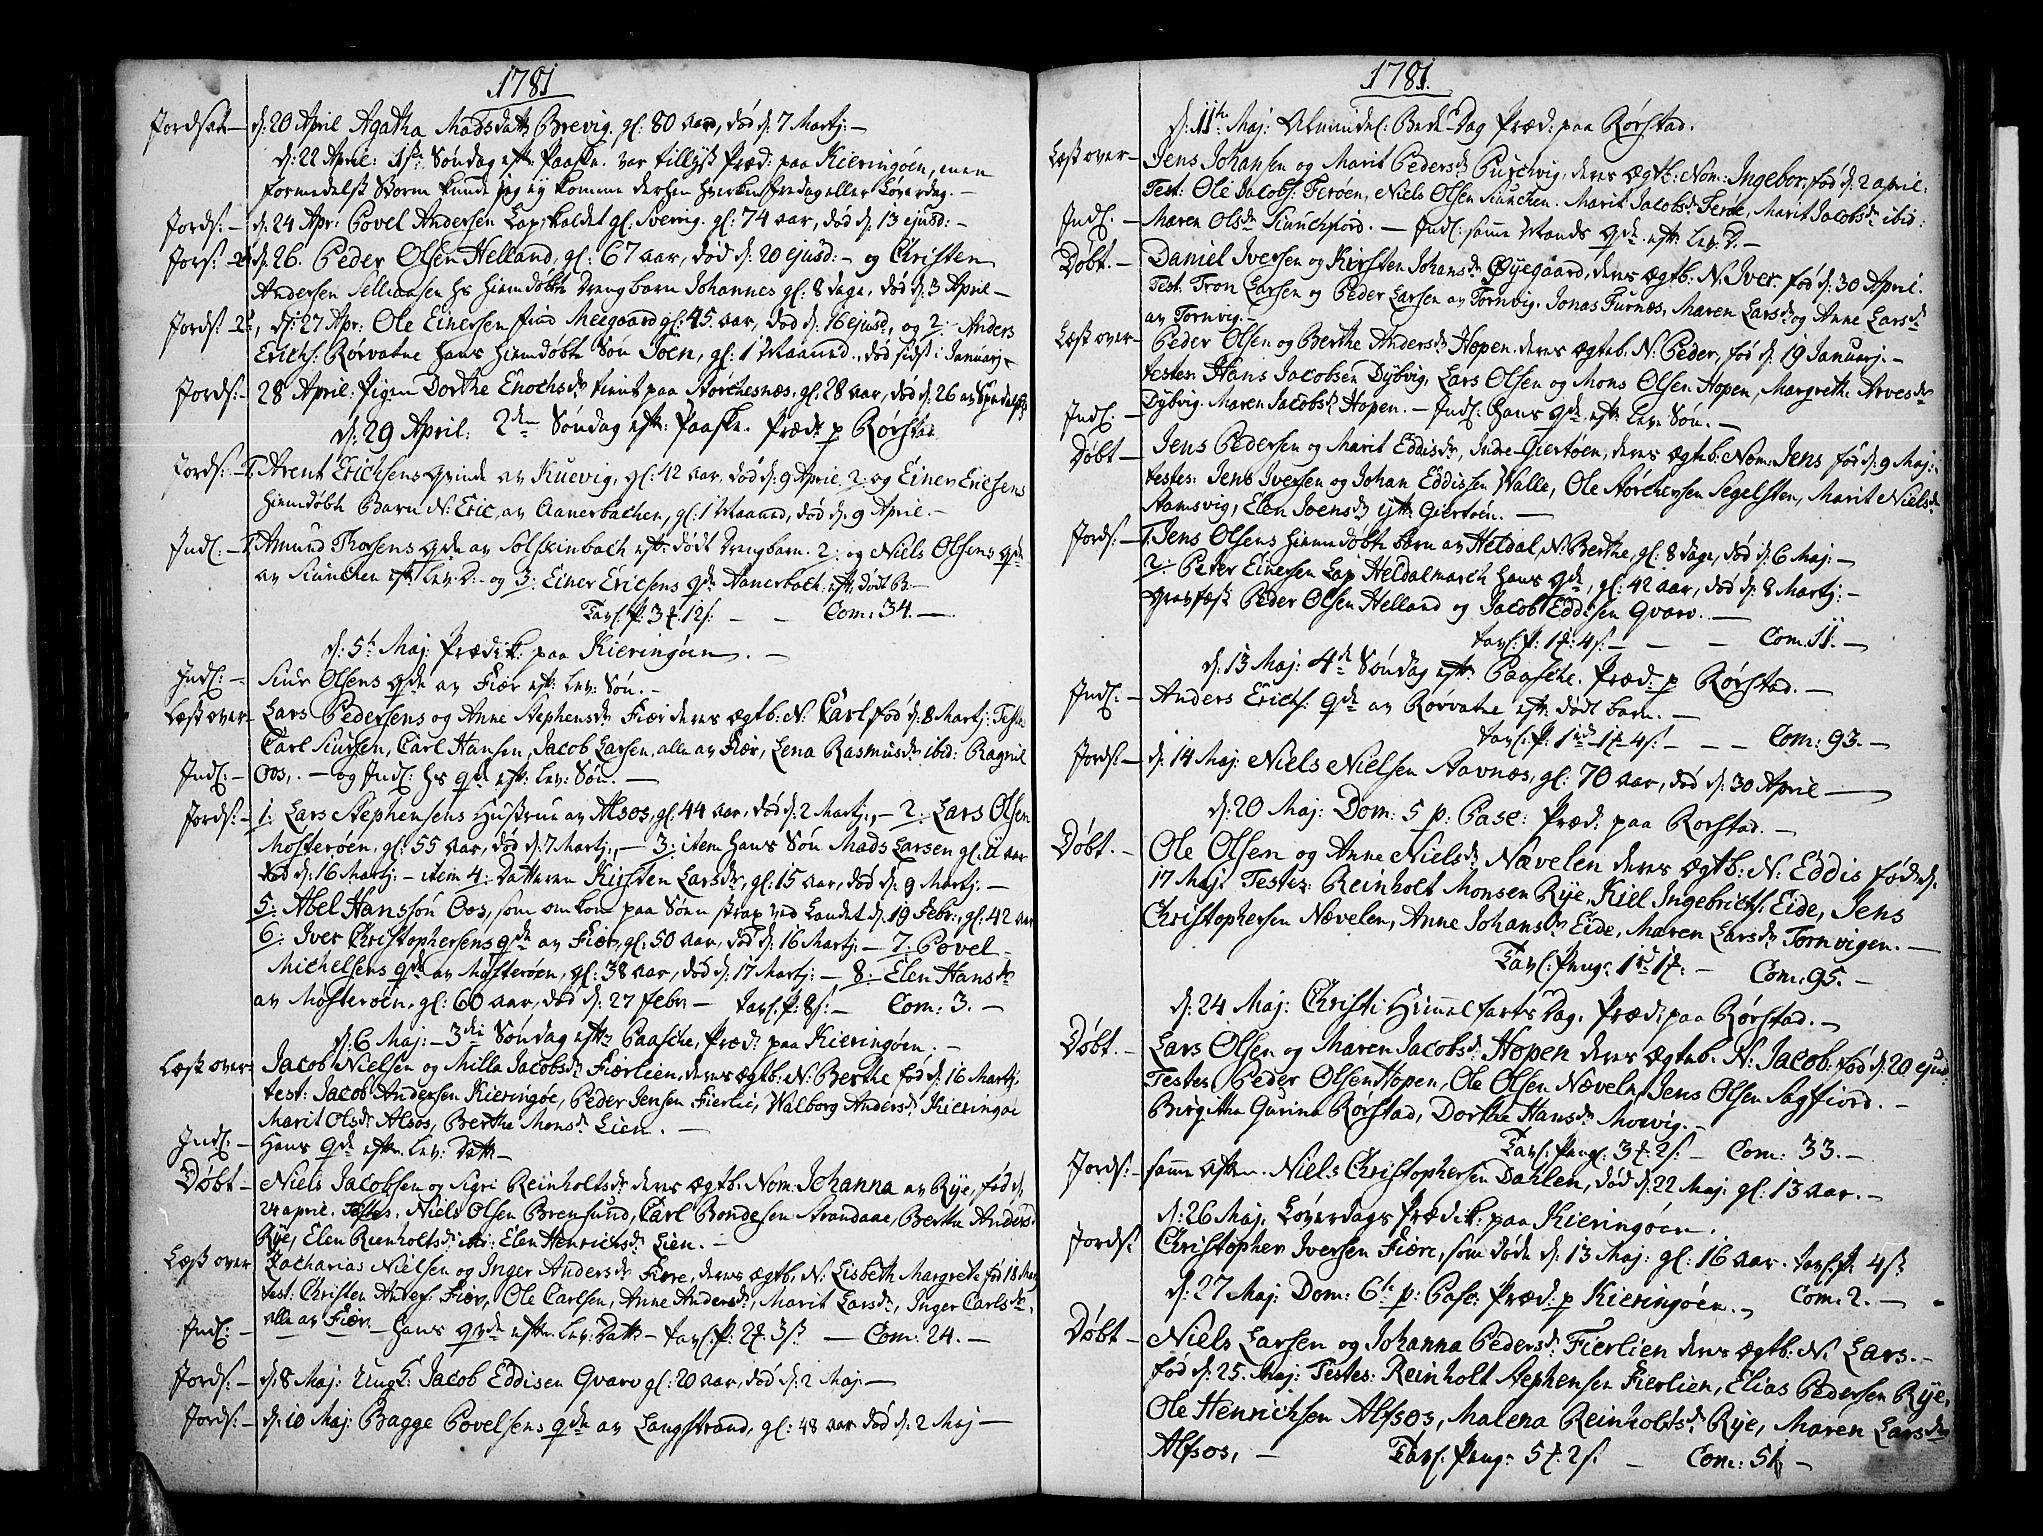 1781
Jordsat – d: 20 April Agatha Madsdatt: Brevig. gl: 80 aar, død d: 7 Martj: –
d: 22 April: 1ste Søndag eftr Paaske. var tillyst Præd: paa Kieringøen, men
formedelst Storm kunde jeg ey komme derhen hverken fredag eller Løverdag. –
Jords: – d: 24 Apr: Povel Andersen Lap, kaldet gl. Sverrig. gl: 74 aar, død d: 13 ejusd: –
Jords: 2de d: 26. Peder Olsen Helland, gl: 67 aar, død d: 20 ejusd: – og Christen
Andersen hs hiemdøbte Drengbarn Johannes gl: 8 dage, død d: 3 April –
Jords: 2de, d: 27 Apr: Ole Einersen gl: 45 aar, død d: 16 ejusd, og 2: Anders
Erichs: Rørvatne hans hiemdøbte Søn Joen, gl: 1 Maaned, død sidst i Januarj –
Jords: – 28 April. Pigen Dorthe Enochsdr tient paa Størchesnæs, gl: 28 aar, død d: 26 av Spedalsk:
d: 29 April: 2den Søndag eftr: Paaske. Præd: p Rørstad
Jords: – 1. Arent Erichsens qvinde av Kuevig, gl: 42 aar, død d: 9 April, 2: og Einer Ericsens
hiemdøbte Barn N: Eric, av Aanerbachen, gl: 1 Maaned, død d: 9 April. –
Indl: – 1. Amund Thorsens qvde av Solskinbach eftr: dødt Drengbarn. 2: og Niels Olsens qvde
av Siunchen eftr Lev: D: – og 3: Einer Ericsens qvde Aanerbach: eftr: dødt B: –
Tavl: P: 3 ₰ 12 s: – – Com: 34. –
d: 5te Maj: Prædik: paa Kieringøen. –
Indl: – Siur Olsens qvde av Fiær eftr: Lev: Søn. –
Læst over – Lars Pedersens og Anne Stephensdr Fiær deres ægtb: N: Carl fød d: 8 Martj: Testes
Carl Siursen, Carl Hansen, Jacob Larsen, alle av Fiær, Lena Rasmusdr ibid: Ragnil
Indl: – Oos, – og Indl: hs qvde eftr: Lev: Søn. –
Jords: – 1: Lars Stephensens Hustrue av Alsos, gl: 44 aar, død d: 2 Martj:, – 2: Lars Olsen
Mosterøen, gl: 55 aar, død d: 7 Martj:, – 3: item hans Søn Mads Larsen gl: 11 aar
død d: 16 Martj: – item 4: Datteren Kirsten Larsdr, gl: 15 aar, død d: 9 Martj: –
5: Abel Hanssøn Oos, som omkom paa Søen strax ved Landet d: 19 Febr:, gl: 42 aar
6: Iver Christophersens qvde av Fiær, gl: 50 aar, død d: 16 Martj: – 7: Povel
Michelsens qvde av Mosterøen, gl: 38 aar, død d: 17 Martj: – 8: Elen Hansdr
av Mosterøen, gl: 60 aar, død d: 27 febr: – Tavl: P: 8 s: – Com: 3. –
d: 6 Maj: – 3die Søndag eftr Paasche, Præd: paa Kieringøen. –
Læst over – Jacob Nielsen og Milla Jacobsdr Fiærlien, deres ægtb: N: Berthe fød d: 16 Martj,
test: Jacob Andersen Kieringøe, Peder Jensen Fierlie, Walborg Andersdr Kieringøe
Marit Olsdr Alsos, Berthe Monsdr Lien. –
Indl: – Hans qvde eftr. Lev: Datt: –
Døbt – Niels Jacobsen og Sigri Reinholtsdr deres ægtb: Nom: Johanna av Rye, fød d:
24 april. Testes. Niels Olsen Brensund, Carl Bondesen Strandaae, Berthe Andersdr
Rye, Elen Reinholtsdr ibi: Elen Henrichsdr Lien. –
Læst over Zacharias Nielsen og Inger Andersdr Fiære, deres ægtb: N: Lisbeth Margrete fød 18 Mart
test: Christen Anders: Fiær, Ole Carlsen, Anne Andersdr, Marit Larsdr, Inger Carlsdr,
Indl: – alle av Fiær. – Hans qvde eftr Lev: Datt: – Tavl: P: 2 ₰ 3 s – Com: 24. –
Jords: – d: 8 Maj: Ungk: Jacob Eddisen Qvarv gl: 20 aar, død d: 2 Maj –
Jords: – d: 10 Maj: Bagge Povelsens qvde av Langstrand, gl: 48 aar død d: 2 Maj –
1781.
d: 11te Maj: Almindel: Bede-Dag Præd: paa Rørstad.
Læst over – Jens Johansen og Marit Pedersdr deres ægtb: Nom: Ingebor, fød d: 2 april:
Test: Ole Jacobs: Ferøen, Niels Olsen Siunchen. Marit Jacobsdr Ferøe, Marit Jacobsdr ibid:
Indl: – Maren Olsdr Siunchfiord. – Indl: samme Mands qvde eftr: Lev: D. –
Døbt. – Daniel Iversen og Kirsten Johansdr Øyegaard, deres ægtb: N: Iver. fød d: 30 April.
Test: Tron Larsen og Peder Larsen av Tornvig. Jonas Furnæs, Maren Larsdr og Anne Larsdr
av Tornvig. –
Læst over – Peder Olsen og Berthe Andersdr Hopen. deres ægteb: N: Peder, fød d: 19 Januarj. –
testes: Hans Jacobsen Dybvig, Lars Olsen og Mons Olsen Hopen, Margrethe Arvesdr
Indl: – Dybvig. Maren Jacobsdr Hopen. – Indl: Hans qvde eftr: Lev: Søn. –
Døbt – Jens Pedersen og Marit Eddisdr, Indre-Giertøen, deres ægtb: Nom: Jens fød d: 9 Maj:
testes: Jens Iversen og Johan Eddissen Valle, Ole Størchersen Segelsten, Marit Nielsdr
Stamsvig, Elen Joensdr ytt: Giertøen. –
Jords: – 1. Jens Olsens hiemdøbte barn av Heldal, N: Berthe, gl: 8 dage, død d: 6 Maj: –
2: Peder Einersen Lap Heldalmarch hans qvde, gl: 42 aar, død d: 8 Martj: –
gravfæst Peder Olsen Helland og Jacob Eddisen Qvarv. –
Tavl: P: 1 ₰ 4 s: – – – Com: 11. –
d: 13 Maj: 4de Søndag eftr Paasche. Præd: p Rørstad. –
Indl: – Anders Erichs: qvde av Rørvatne eftr: dødt barn. –
Tavl: P: 1 rd 1 ₰ 4 s: – – – Com: 93. –
Jords: – d: 14 Maj: Niels Nielsen Aavnæs, gl: 70 aar, død d: 30 April –
d: 20 Maj: Dom: 5 p: Pasc: Præd: paa Rørstad. –
Døbt. – Ole Olsen og Anne Nielsdr Nævelen deres ægtb: N: Eddis fød d:
17 Maj: Testes: Reinholt Monsen Rye, Kiel Ingebrichts: Eide, Jens
Christophersen Nævelen, Anne Johansdr Eide, Maren Larsdr Tornvigen. –
Tavl: Peng: 1 rd 1 ₰: – Com: 95. –
d: 24 Maj: Christi Himmelfarts Dag. Præd: paa Rørstad. –
Døbt. – Lars Olsen og Maren Jacobsdr Hopen deres ægteb. N: Jacob. fød d: 20 ejusd:
Testes Peder Olsen Hopen, Ole Olsen Næveln, Jens Olsen Sagfiord. –
Birgitha Gurina Rørstad, Dorthe Hansdr Moevig. –
Tavl: Peng: 3 ₰ 2 s: – Com: 33. –
Jords: – samme aften. Niels Christophersen Dahlen, død d: 22 Maj: gl: 13 aar. –
d: 26 Maj. Løverdags Prædik: paa Kieringøen.
Jords: Christopher Iversen Fiære, som døde d: 13 Maj: gl: 16 aar. Tavl: P: 4 s
d: 27 Maj: Dom: 6te p: Pasc: Præd: p Kieringøen. – Com: 2. –
Døbt – Niels Larsen og Johanna Pedersdr Fierlien deres ægtb: N: Lars. –
fød d: 25. Maj: Testes: Reinholt Stephensen Fierlien, Elias Pedersen Rye,
Ole Henrichsen Alfsos, Malena Reinholtsdr Rye, Maren Larsdr
Alfsos, – Tavl: Peng: 5 ₰ 2 s: – Com: 51 –